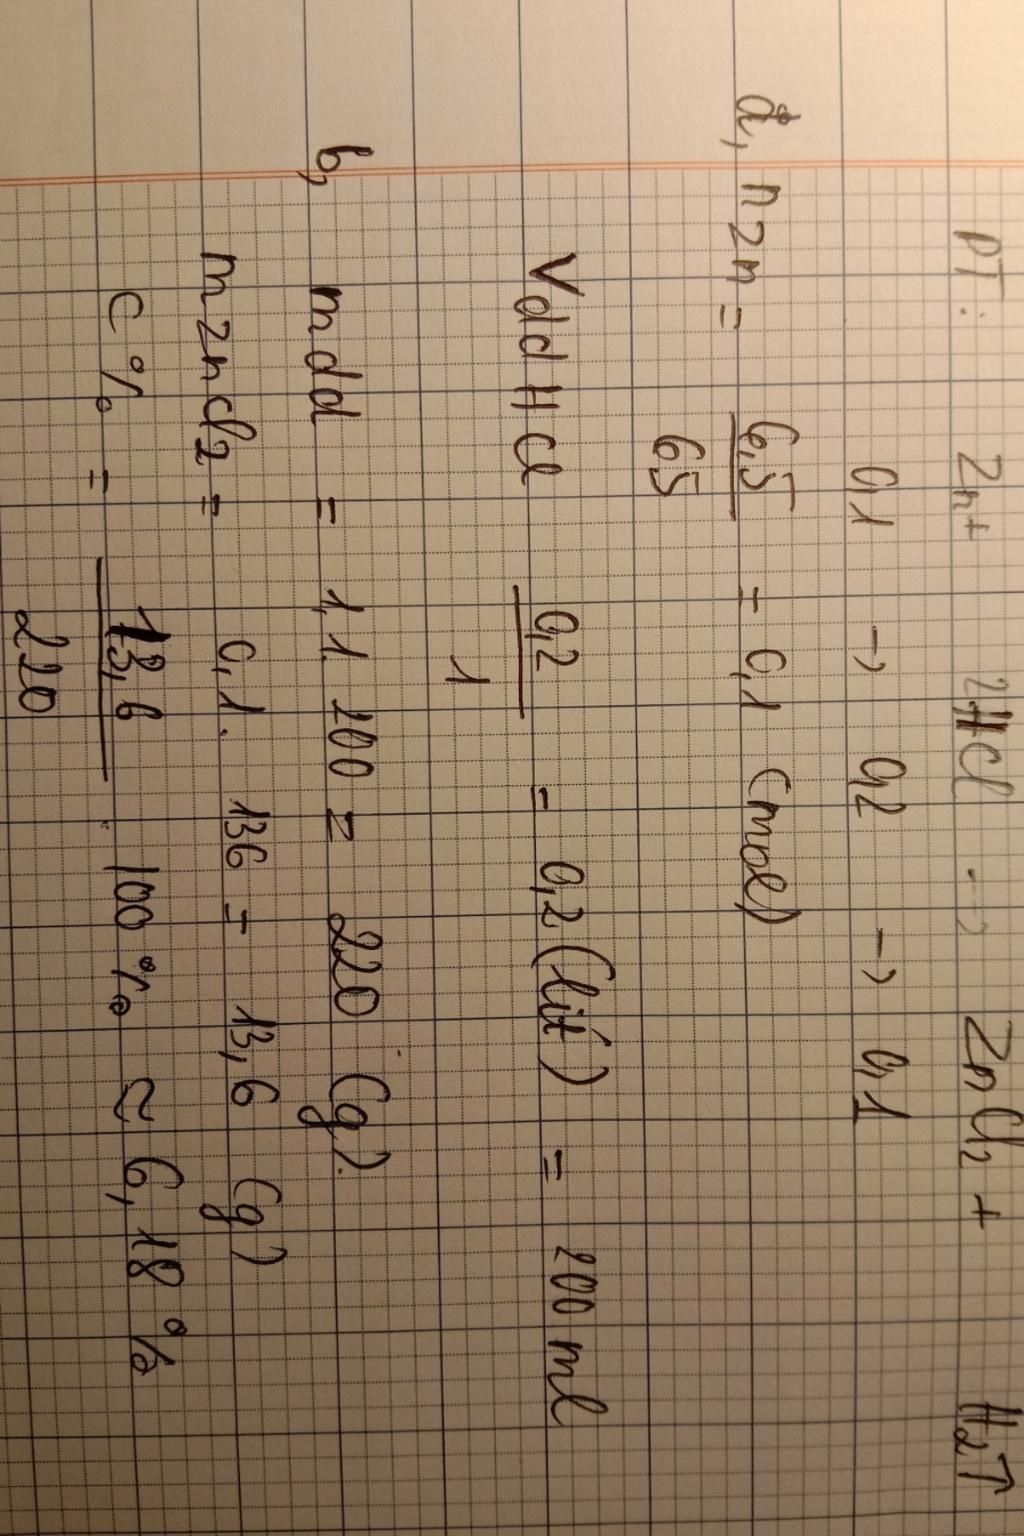 PT: Zn + 2HCl → ZnCl₂ + H₂↑
0,1 → 0,2 → 0,1
a, nZn = 6,5 = 0,1 (mol)
65
Vdd HCl 0,2 = 0,2 (lít) = 200 ml
1
b, mdd = 1,1. 200 = 220 (g).
mZnCl₂ = 0,1. 136 = 13,6 (g)
C% = 13,6 100% ≈ 6,18%
220